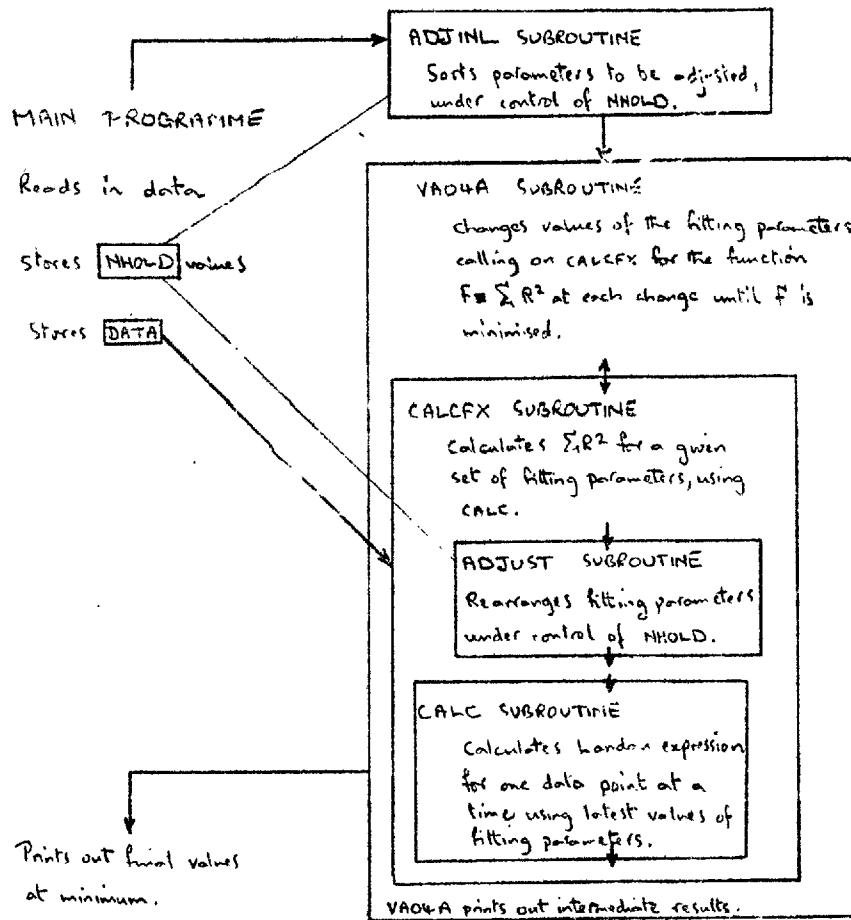 ADJINL SUBROUTINE
Sorts parameters to be adjusted,
under control of NHOLD.
MAIN PROGRAMME
Reads in data
Stores NHOLD values
Stores DATA
VA04A SUBROUTINE
changes values of the fitting parameters
calling on CALCFX for the function
F = Σ R² at each change until F is
minimised.
CALCFX SUBROUTINE
Calculates Σ R² for a given
set of fitting parameters, using
CALC.
ADJUST SUBROUTINE
Rearranges fitting parameters
under control of NHOLD.
CALC SUBROUTINE
Calculates expression
for one data point at a
time using latest values of
fitting parameters.
Prints out final values
at minimum.
VA04A prints out intermediate results.